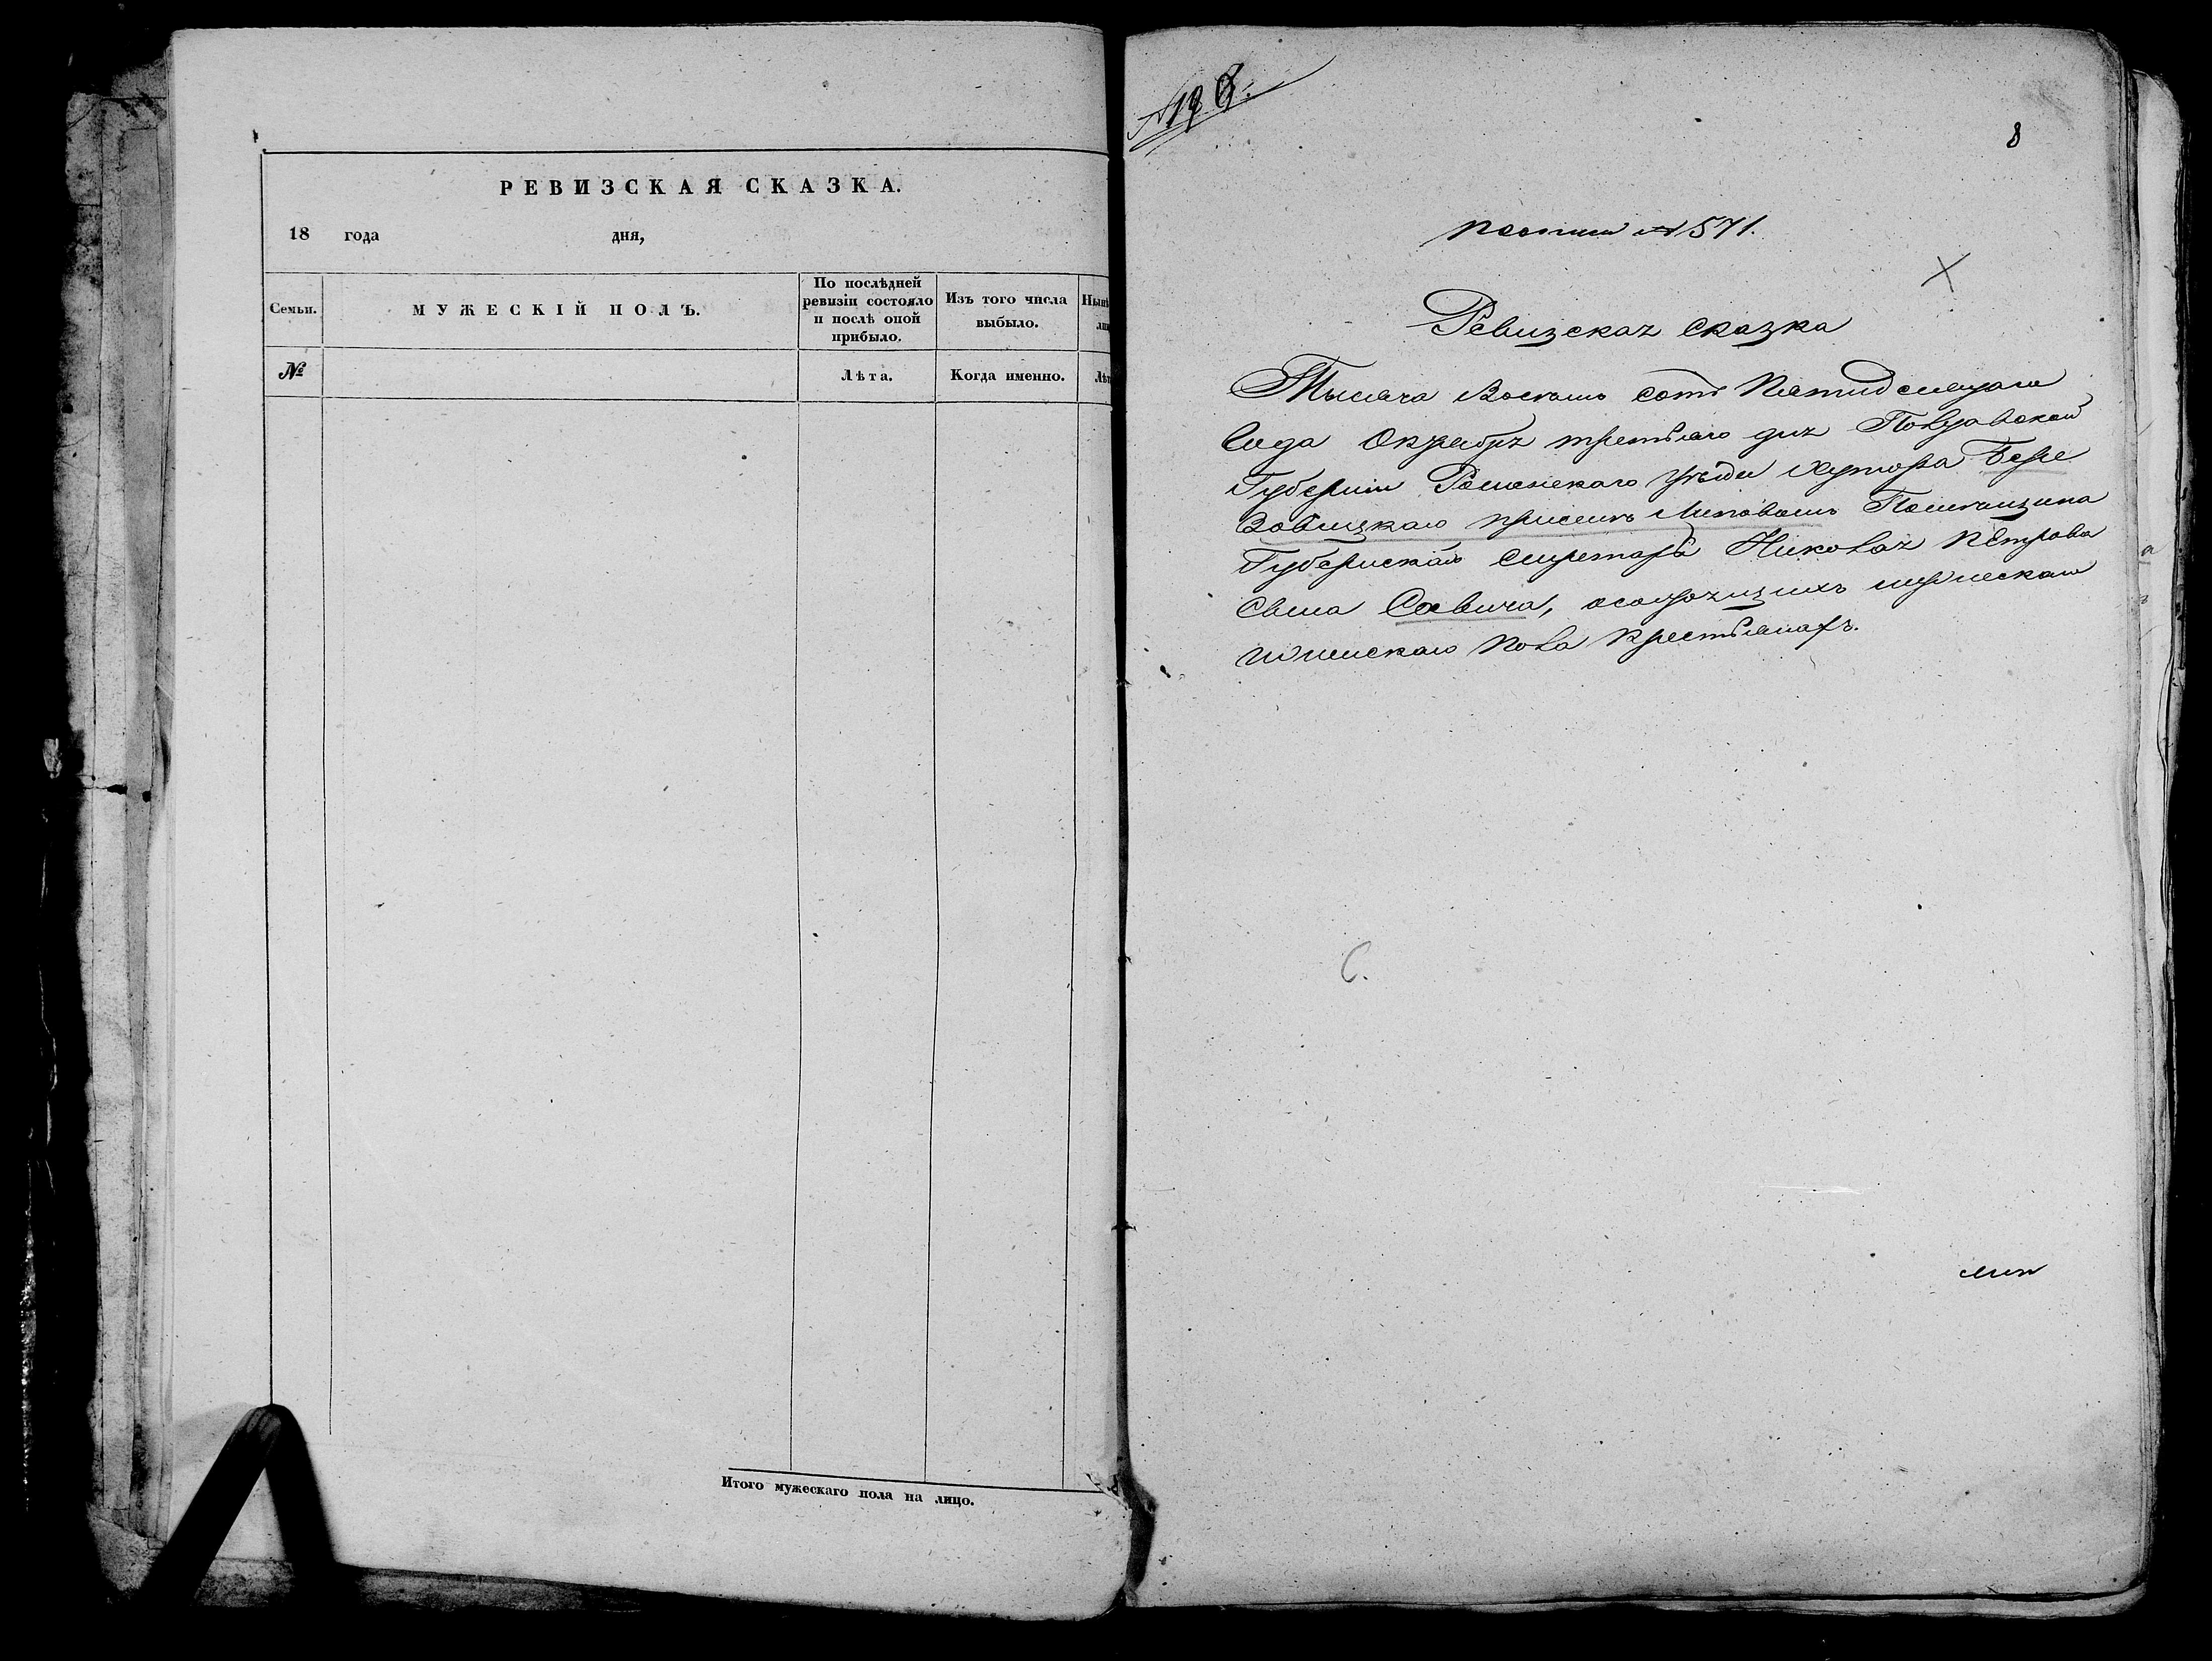 РЕВИЗСКАЯ СКАЗКА.
18 года дня,
Семьи.
МУЖЕСКІЙ ПОЛЪ.
По послѣдней
ревизіи состояло
и послѣ оной
прибыло.
Изъ того числа
выбыло.
№
Лѣта.
Когда именно.
Итого мужескаго пола на лицо.
8
№ 571.
Ревизская сказка
Тысяча Восемь сотъ Пятидесятаго
Года Октября третьяго дня Полтавской
Губерніи Роменскаго уѣзда Хутора Бере
Помѣщика
Губернскаго Секретаря Николая Петрова
Сына Савича, мужескаго
и женскаго пола крестьянахъ.
С.